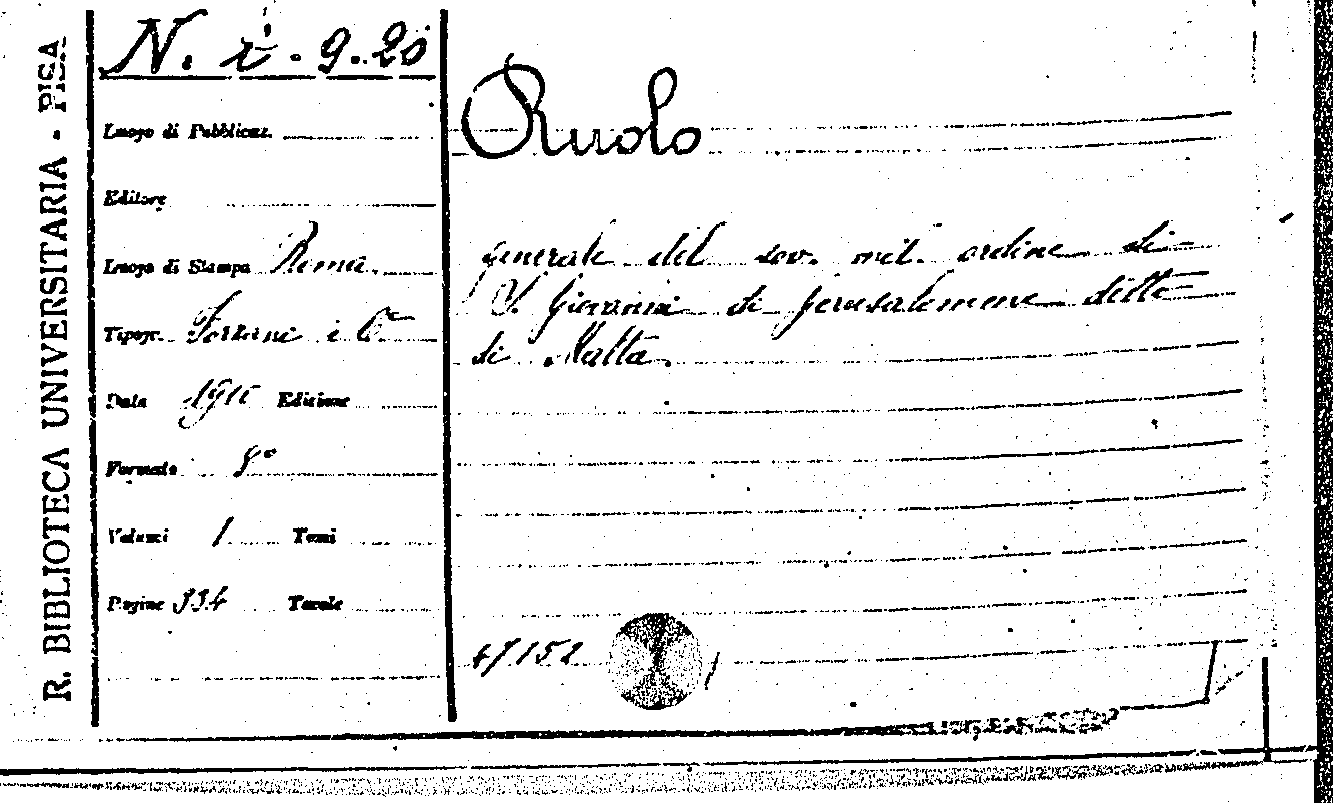 R. BIBLIOTECA UNIVERSITARIA - PISA
N. i. 9. 20
Luogo di Pubblicaz.
Editore
Luogo di Stampa Roma
Tipogr. Forzani e C.
Data Edizione
Formato 8°
Volumi 1 Tomi
Pagine 334 Tavole
Ruolo
generale del sov. mil. ordine di
S. Giovanni di Jerusalemme detto
di Malta.
47152